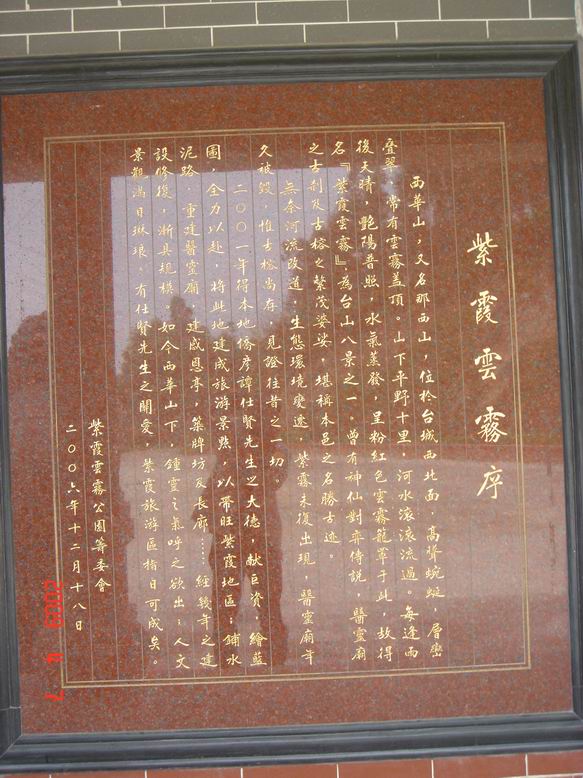 紫霞雲霧序
西華山，又名那西山，位於台城西北面，高聳蜿蜒，層巒
疊翠，常有雲霧蓋頂。山下平野十里，河水滾滾流過。每逢雨
後天晴，艷陽普照，水氣蒸發，呈粉紅色雲霧籠罩于此，故得
名『紫霞雲霧』，為台山八景之一。曾有神仙對弈傳說，醫靈廟
之古刹及古榕之繁茂婆娑，堪稱本邑之名勝古迹。
無奈河流改道，生態環境變遷，紫霧未復出現，醫靈廟年
久被毀，惟古榕尚存，見證往昔之一切。
二〇〇一年得本地僑彥譚仕賢先生之大德，献巨資，繪藍
圖，全力以赴，將此地建成旅游景點，以帶旺紫霞地區；鋪水
泥路，重建醫靈廟，建感恩亭，築牌坊及長廊……經幾年之建
設修復，漸具規模。如今西華山下，鍾靈之氣呼之欲出；人文
景觀滿目琳琅，有仕賢先生之關愛，紫霞旅游區指日可成矣。
紫霞雲霧公園籌委會
二〇〇六年十二月十八日